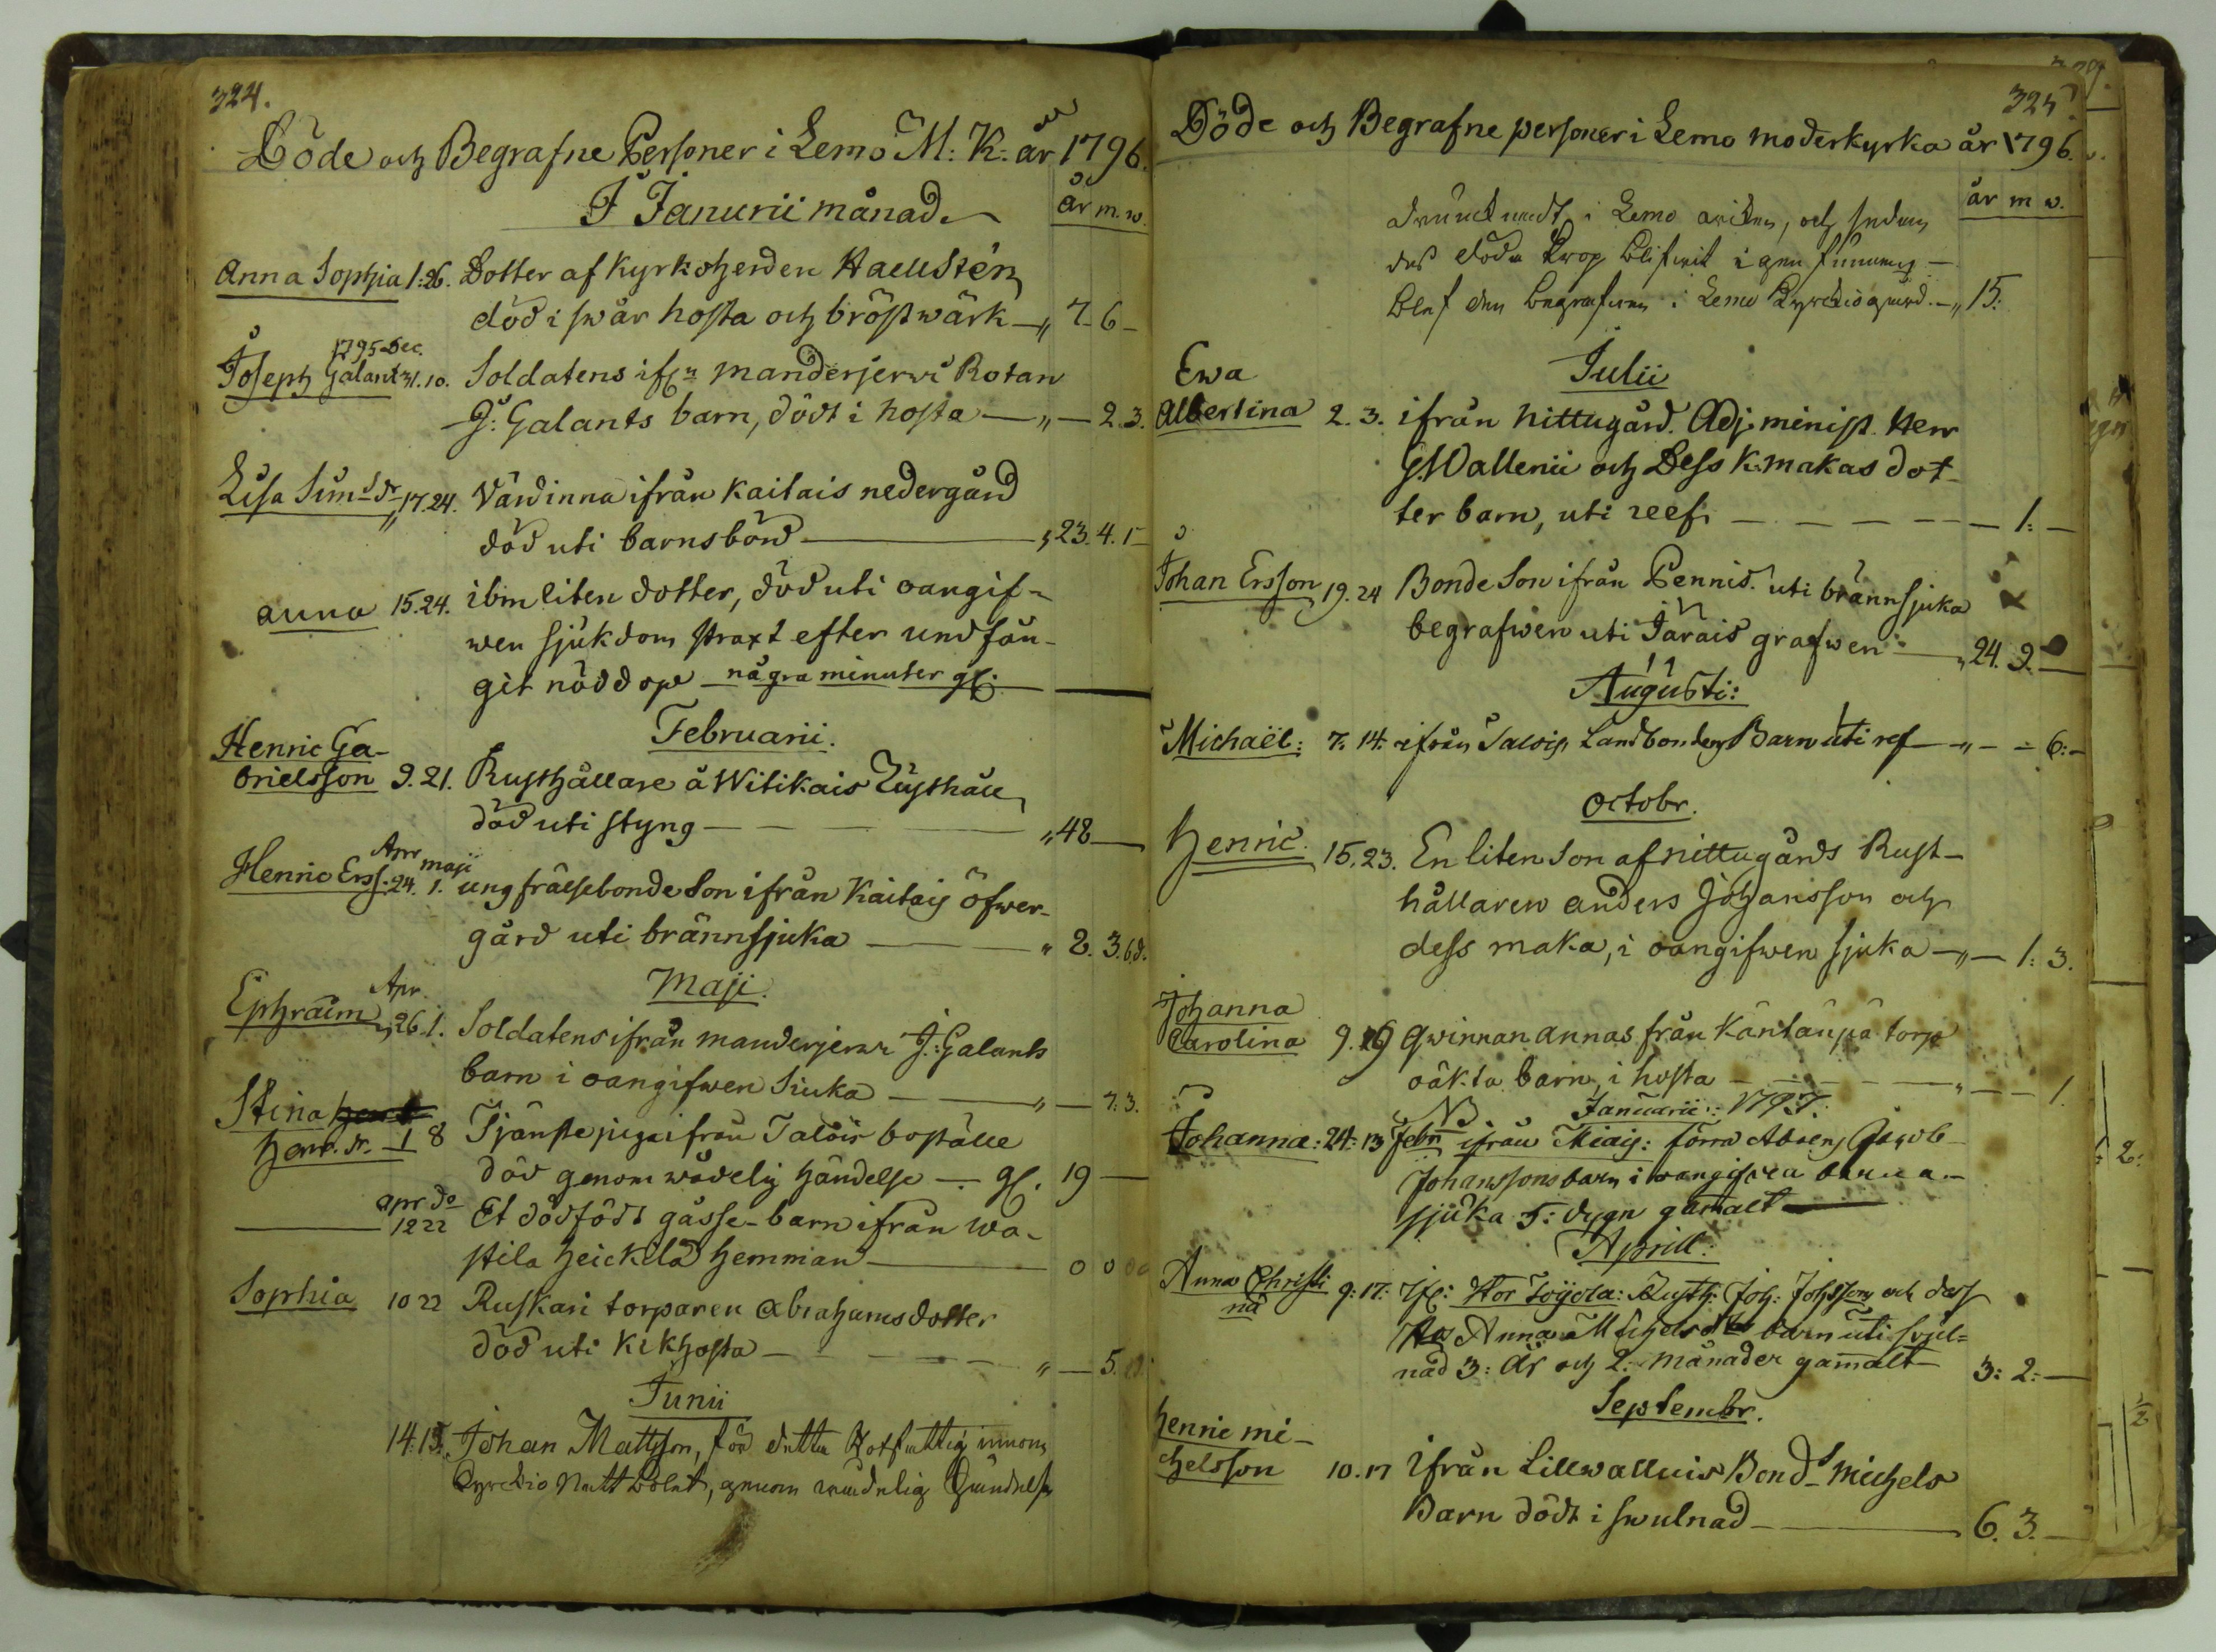 324.
Döde och Begrafne Personer i Lemo M: K: år 1796.
I Januarii månad
år m. w.
Anna Sophia 1:26. Dotter af Kyrkoherden Haellstén
död i swår hosta och bröstwärk — „ 7 - 6 -
1795 Dec.
Joseph Galant 31. 10. Soldatens ifrn manderjerwi Rotan
J: Galants barn, dödt i hosta — „ — 2. 3.
Lisa Sims dr 17. 24. Värdinna ifrån Kaitais nedergård
död uti barnsbörd — „ 23. 4. 1 -
Anna 15. 24. ibm liten dotter, död uti oangif-
wen sjukdom straxt efter undfån-
git nöddope några minuter gl. —
Februarii.
Henric Ga-
brielsson 9. 21. Rusthållare å Witikais Rusthåll
död uti styng — „ 48 —
Apr maji
Henric Erss. 24. 1. ung frälsebonde Son ifrån Kaitais öfwer-
gård uti brännsjuka — „ 2. 3. 6 d.
Maji.
Apr.
Ephraim 26. 1. Soldatens ifrån manderjerwi J: Galants
barn i oangifwen Siuka — „ — 7: 3.
Stina
Henr. dr. - 1 8 Tjänstepiga ifrån Jalois boställe
död genom wådelig händelse — gl. 19 —
apr do
12 22 Et dödfödt gåsse-barn ifrån wa-
stila Heickilä Hemman — 0 0 0
Sophia 10 22 Ruskari torparen Abrahams dotter
död uti Kikhosta — „ — 5.
Junii
14. 15. Johan Mattsson, för detta Rotfattig innom
Kyrckio Natt Wolat, genom wådelig Händelse
325.
Döde och Begrafne personer i Lemo moderkyrka år 1796.
år m w.
drunknadt i Lemo, och sedan
des döda Krop blifwit igen funnen —
blef den begrafwen i Lemo Kyrckiogård. — „ 15:
Julii
Ewa
Albertina 2. 3. ifrån Nittugård. Adj. minist. Herr
G. Wallenii och Dess K. makas dot-
ter barn, uti reef — 1: —
Johan Ersson 19. 24 Bonde Son ifrån Pennis. uti brännsjuka
begrafwen uti Jarais grafwen — „ 24. 9. —
Augusti:
Michaël: 7. 14. ifrån Jalois Landbondens Barn uti ref — „ - - 6: -
Octobr.
Henric. 15. 23. En liten Son af Nittugårds Rust-
hållaren Anders Johansson och
dess maka, i oangifwen sjuka — „ — 1: 3.
Johanna
Carolina 9. 16 Qwinnan Annas från Käntänpä torp
oäkta barn, i hosta — „ — — 1.
NB Januarii: 1797.
Johanna: 24: 13 Febr ifrån Miais: förra Åboens Jacob
Johanssons barn i oangifwen barna-
sjuka 5: dygn gamalt —
Aprill:
Anna Christi
na 9: 17: ifr: Stor Joÿola: Rusth: Joh: Johssons och dess
Anna Michelsdtr barn uti swul-
nad 3: År och 2: Månader gamalt — 3: 2: —
Septembr.
Henric mi-
chelsson 10. 17 ifrån Lillwalluis Bond- Michels
Barn dödt i swulnad — 6. 3. —